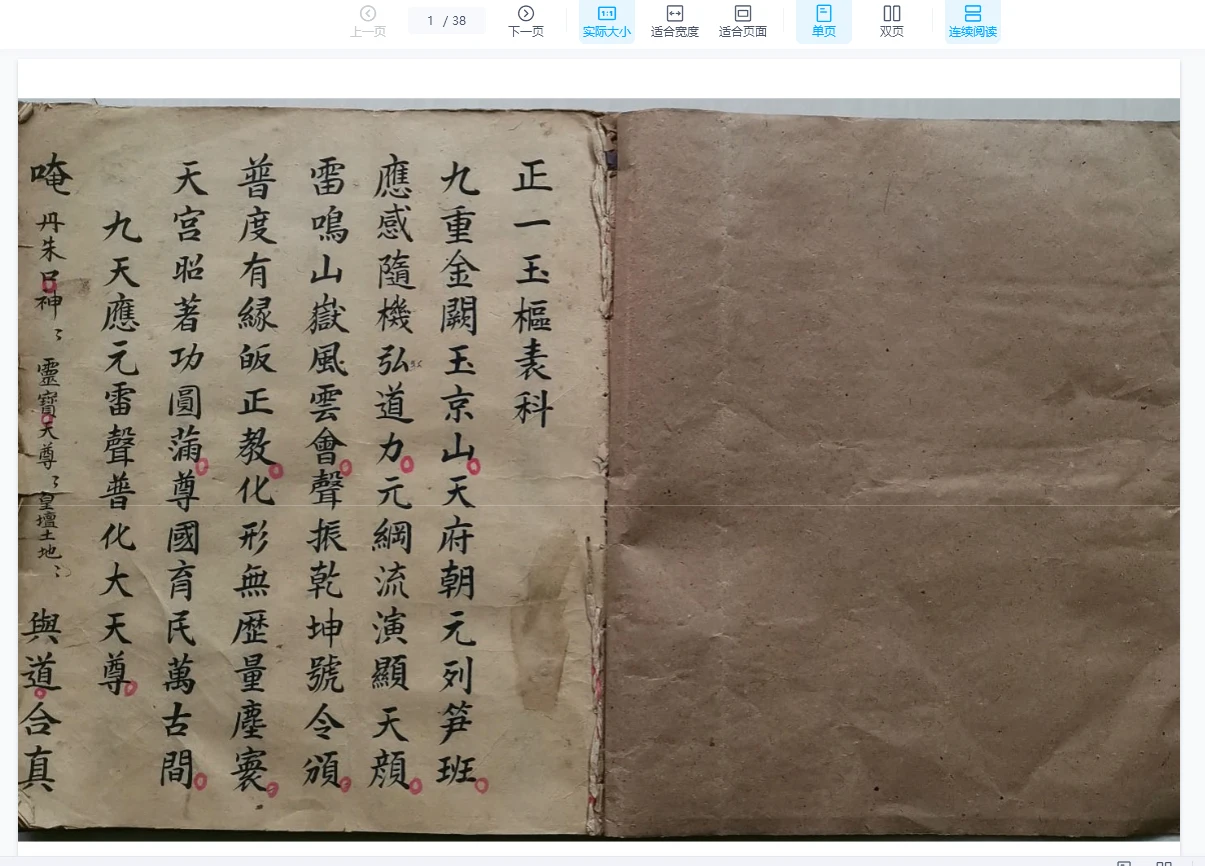 上一页
1 / 38
下一页
实际大小
适合宽度
适合页面
单页
双页
连续阅读
正一玉樞表科
九重金闕玉京山天府朝元列笋班
應感隨機弘道力元綱流演顯天顔
雷鳴山嶽風雲會聲振乾坤號令頒
普度有緣皈正教化形無歷量塵寰
天宮昭著功圓滿尊國育民萬古間
九天應元雷聲普化大天尊
唵 丹朱口神 靈寶天尊 皇壇土地 與道合真